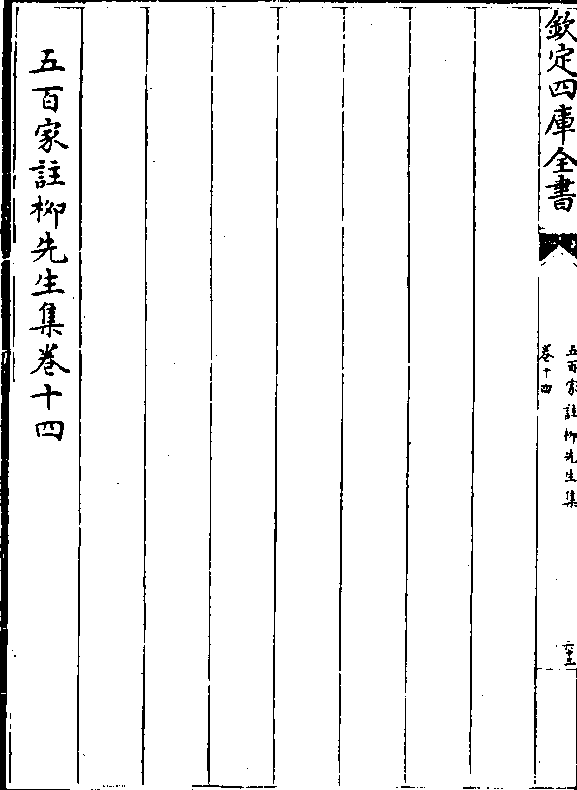 欽定四庫全書
五百家註柳先生集
卷十四
五百家註柳先生集卷十四